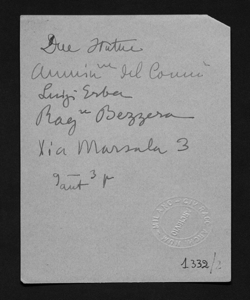 Due Statue
Ammin^ne del Comm^
Luigi Erba
Rag^re Bezzera
Via Marsala 3
3
1332/2